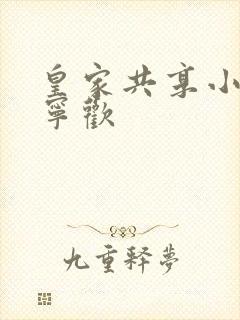 皇家共享小
寧歡
九重释夢